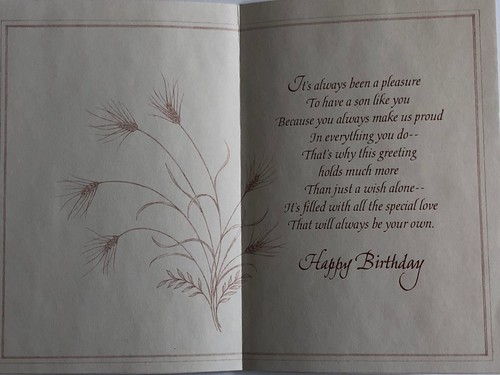 It's always been a pleasure
To have a son like you
Because you always make us proud
In everything you do--
That's why this greeting
holds much more
Than just a wish alone--
It's filled with all the special love
That will always be your own.
Happy Birthday